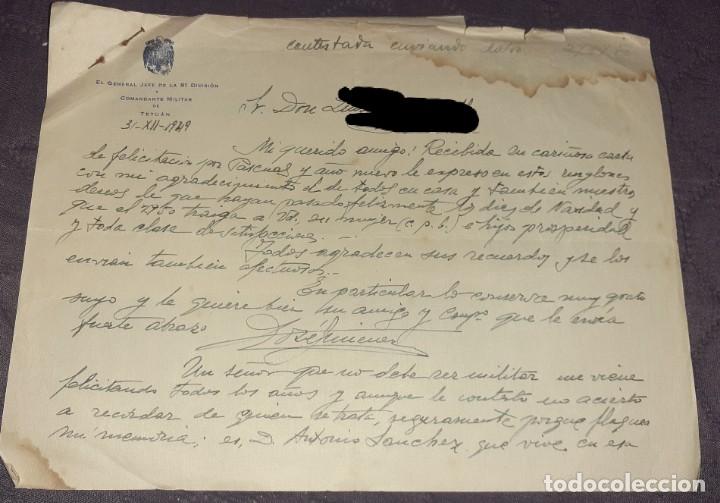 contestada enviando
EL GENERAL JEFE DE LA 91 DIVISIÓN
Y
COMANDANTE MILITAR
DE
TETUÁN
31-XII-1949
Sr. Don Luis
Mi querido amigo: Recibida su cariñosa carta
de felicitación por Pascuas y año nuevo le expreso en estos renglones
con mi agradecimiento el de todos en casa y también nuestros
deseos de que hayan pasado felizmente los dias de Navidad y
que el 1950 traiga a Vd. su mujer (c.p.b.) e hijos prosperidad
y toda clase de satisfacciones.-
Todos agradecen sus recuerdos y se los
envian también afectuosos.-
En particular lo conserva muy grato
suyo y le quiere bien su amigo y compº que le envía
fuerte abrazo
José Jimenez
Un señor que no debe ser militar me viene
felicitando todos los años y aunque le contesto no acierto
a recordar de quien se trata, seguramente porque flaquea
mi memoria; es, D. Antonio Sanchez, que vive en esa
todocoleccion